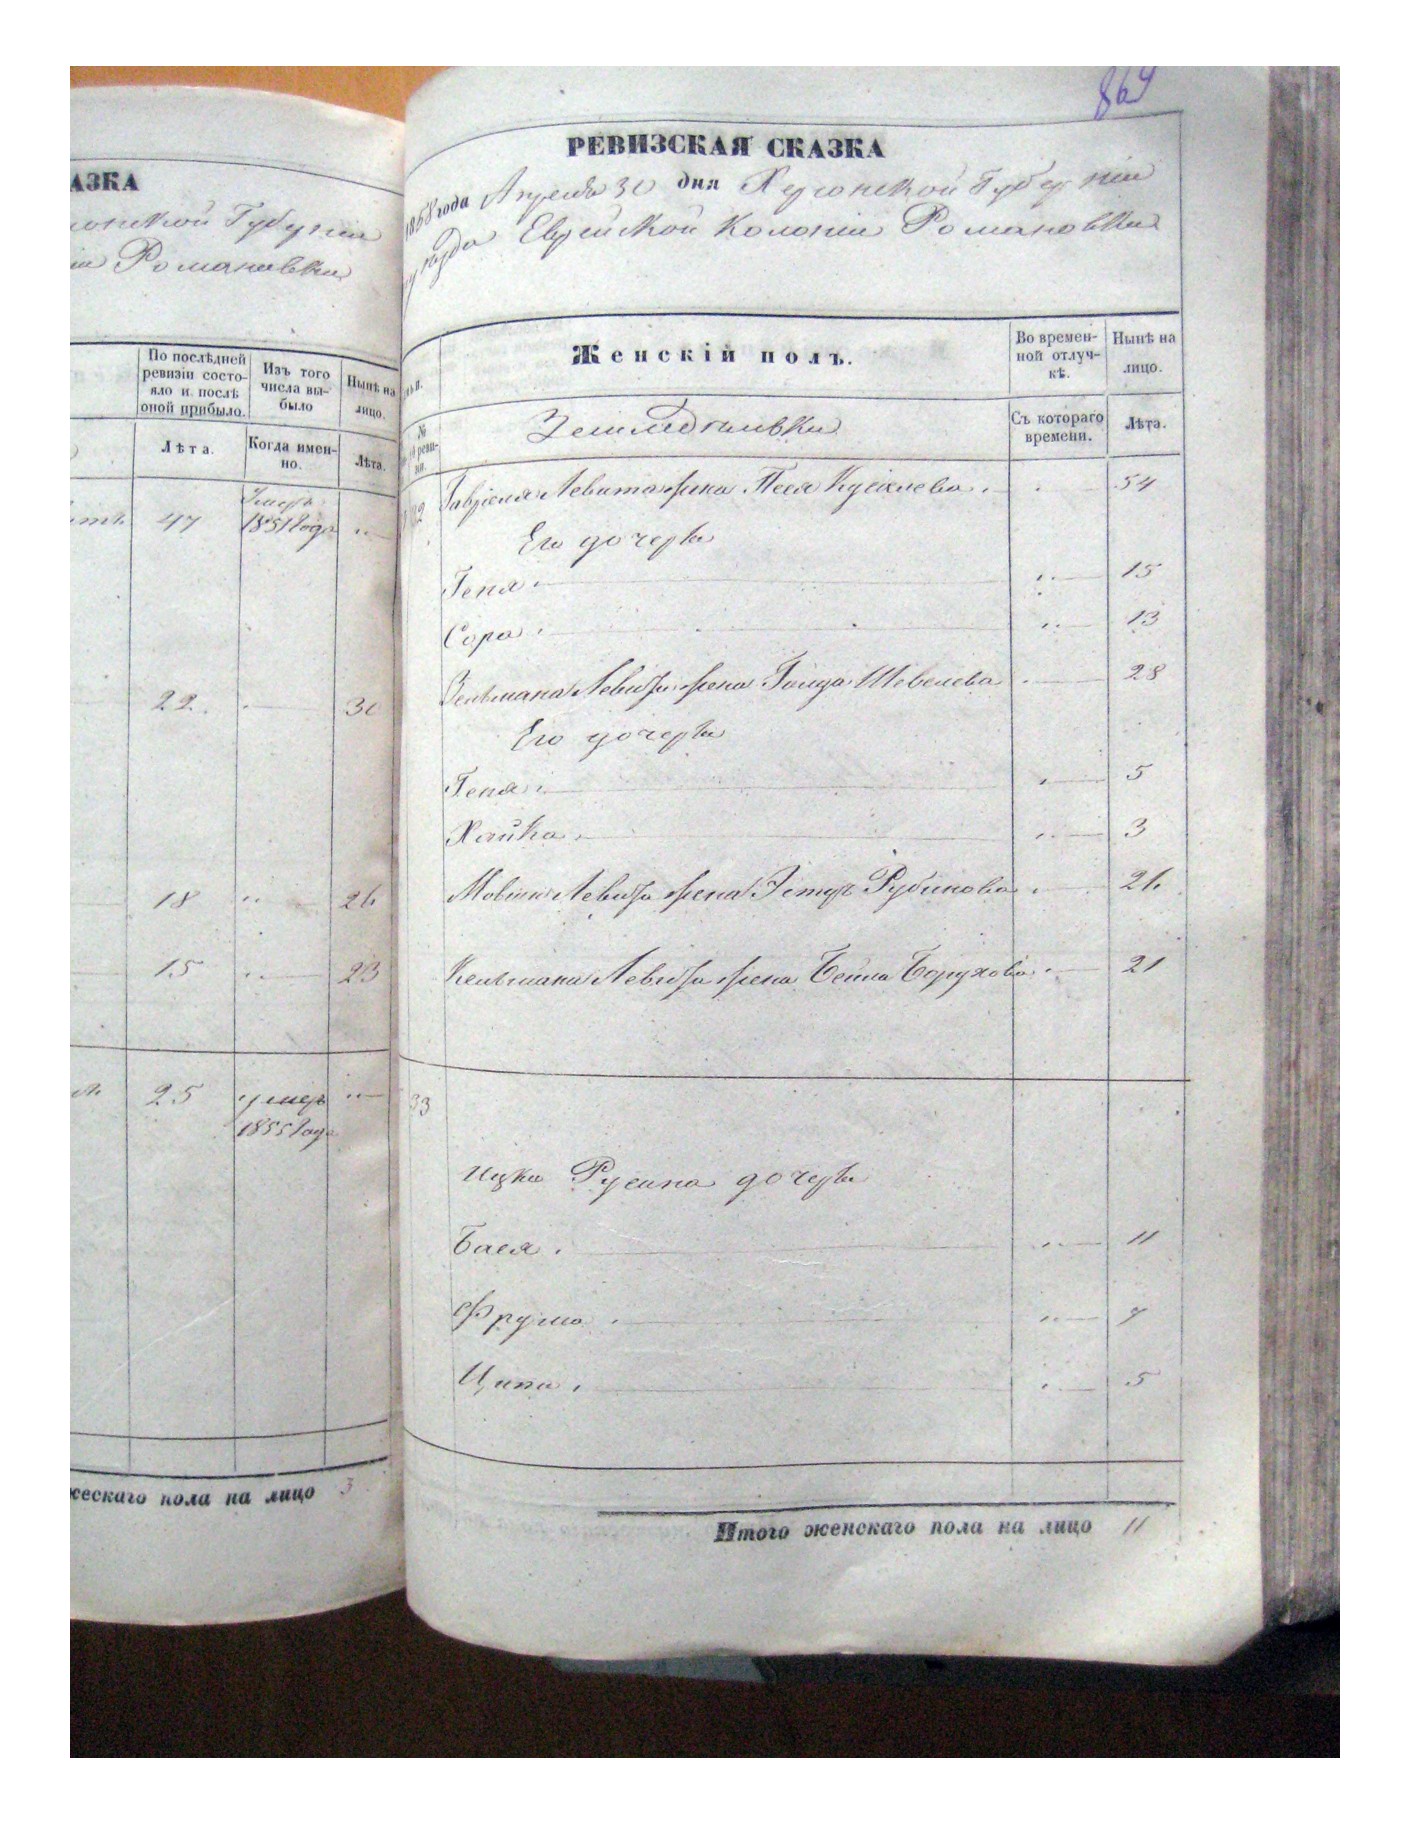 АЗКА
Губерніи
Романовки
По послѣдней ревизіи состо-
яло и послѣ
оной прибыло.
Изъ того
числа вы-
было
Нынѣ на
лицо.
Лѣта.
Когда имен-
но.
Лѣта.
47
Умеръ
1851 года
22
30
18
26
15
23
25
умеръ
1855 года
жескаго пола на лицо 3
864
РЕВИЗСКАЯ СКАЗКА
1858 года Апреля 30 дня Херсонской Губерніи
уѣзда Еврейской Колоніи Романовки
Женскій полъ.
Во времен-
ной отлуч-
кѣ.
Нынѣ на
лицо.
№
Земледѣлки
Съ котораго
времени.
Лѣта.
Гавріеля Левита жена Песя 54
Его дочери
Геня 15
Сора 13
Зельмана Левита жена Голда Шевелева 28
Его дочери
Геня 5
Хайка 3
Левита жена Эстеръ Рубинова 26
Кельмана Левита жена Бейла Борухова 21
33
Ицки Русина дочери
Бася 11
Фрума 7
Ципа 5
Итого женскаго пола на лицо 11